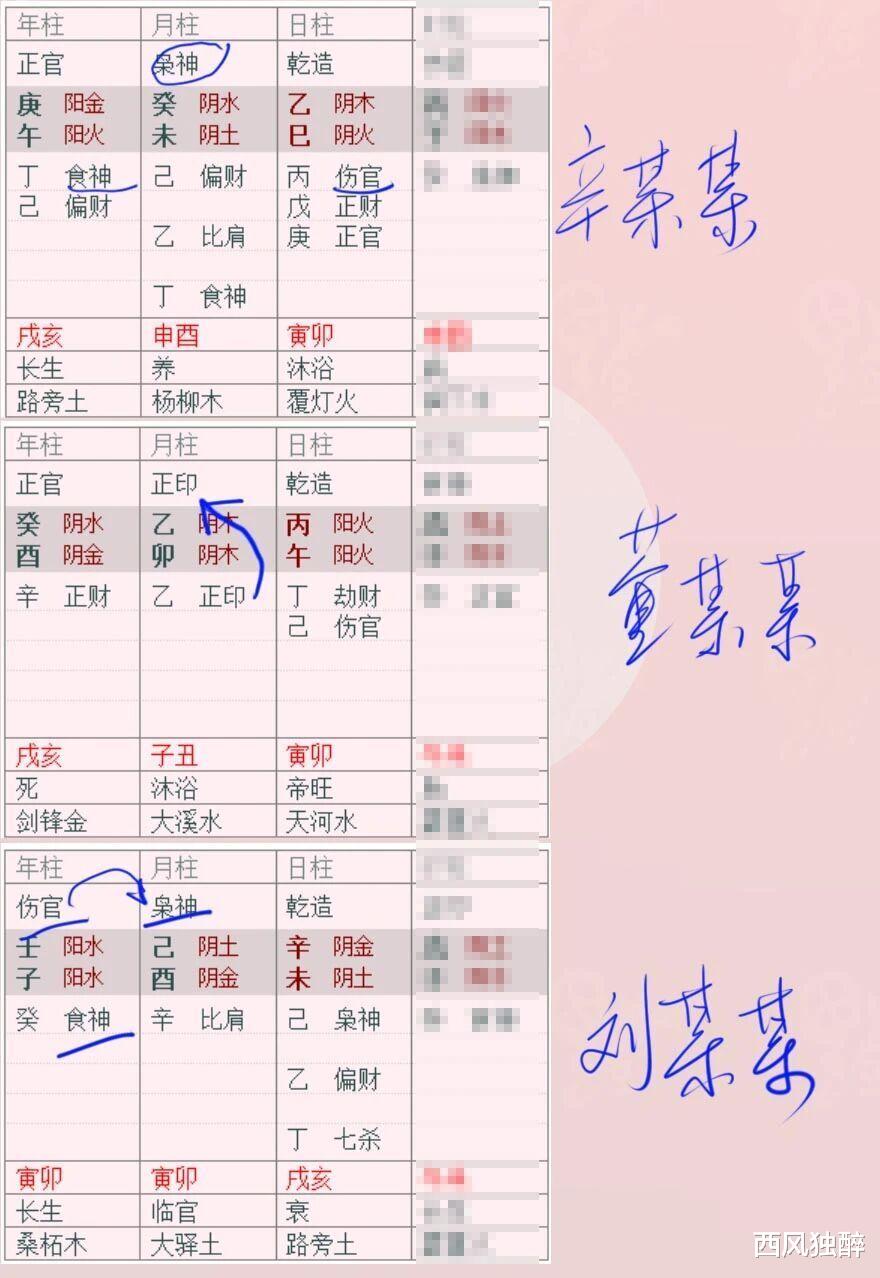 年柱 月柱 日柱
正官 枭神 乾造
庚 阳金 癸 阴水 乙 阴木
午 阳火 未 阴土 巳 阴火
丁 食神 己 偏财 丙 伤官
己 偏财 戊 正财
乙 比肩 庚 正官
丁 食神
戌亥 申酉 寅卯
长生 养 沐浴
路旁土 杨柳木 覆灯火
辛某某
年柱 月柱 日柱
正官 正印 乾造
癸 阴水 乙 阴木 丙 阳火
酉 阴金 卯 阴木 午 阳火
辛 正财 乙 正印 丁 劫财
己 伤官
戌亥 子丑 寅卯
死 沐浴 帝旺
剑锋金 大溪水 天河水
董某某
年柱 月柱 日柱
伤官 枭神 乾造
壬 阳水 己 阴土 辛 阴金
子 阳水 酉 阴金 未 阴土
癸 食神 辛 比肩 己 枭神
乙 偏财
丁 七杀
寅卯 寅卯 戌亥
长生 临官 衰
桑柘木 大驿土 路旁土
刘某某
西风独醉